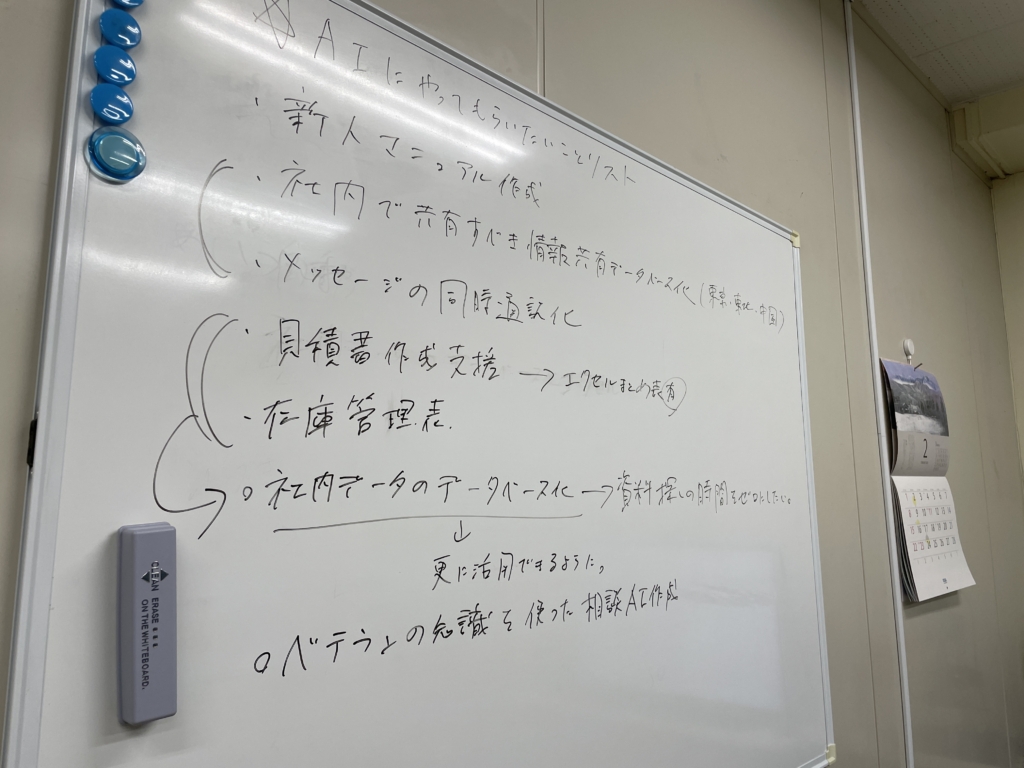 ☆ AIにやってもらいたいことリスト
・新人マニュアル作成
・社内で共有すべき情報共有データベース化(東京、東北、中国)
・メッセージの同時通訳化
・見積書作成支援 → エクセルまとめ表有
・在庫管理表
○社内データのデータベース化 → 資料探しの時間をゼロにしたい。
↓
更に活用できるように。
○ベテランの知識を使った相談AI作成
CLEAN ERASE
ON THE WHITEBOARD.
2